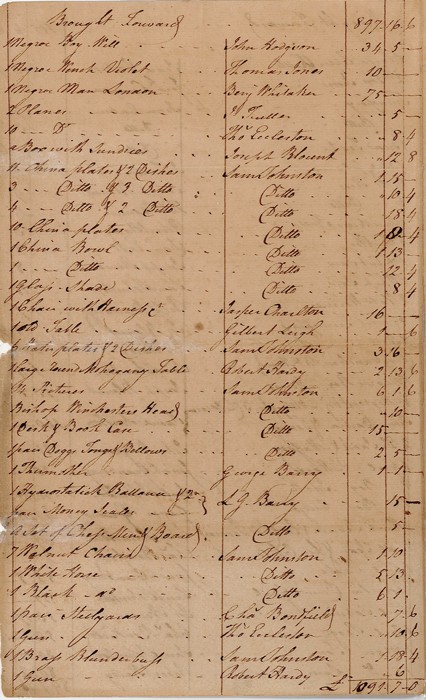 Brought Forward 897 16 6
1 Negroe Boy Will John Hodgson 34 5 —
1 Negroe Wench Violet Thomas Jones 10 —
1 Negroe Man London Benj Whitaker 75 —
2 Planes — 5 —
10 — Do Thos Eccleston — 8 4
a Box with Sundries Joseph Blount — 12 8
China plates & 2 Dishes Saml Johnston 1 15 —
3 Ditto & 3 Ditto Ditto — 10 4
4 Ditto & 2 Ditto Ditto — 18 4
10 China plates Ditto
1 China Bowl Ditto 1 13 —
1 — Ditto Ditto — 12 4
1 Glass Shade Ditto 8 4
1 Chair with Harness &c Jasper Charlton 16 —
1 old Table Gilbert Leigh 1 — 6
plates & 2 Dishes Saml Johnston
1 Large Round Mahogany Table Robert Hardy 2 13 6
Pictures Saml Johnston 6 1 6
Bishop Winchesters Head Ditto — 10 —
1 Desk & Book Case Ditto 15 —
1 pair Doggs Tongs & Bellows Ditto 2 5 —
1 George Barry 1 1 —
1 Hydrostatick Ballance & 2
pair Money Scales Barry 15 —
a Set of Chess Men & Board Ditto — 5 —
7 Walnut Chairs Saml Johnston 1 10
1 White Horse Ditto 5 13
1 Black Do Ditto 6 1
1 pair Steelyards Chas Bondfield — 7 6
1 Gun Thos Eccleston — 10 6
1 Brass Blunderbuss Saml Johnston 1 18 4
1 Gun Robert Hardy — 6
£ 1097 7 0